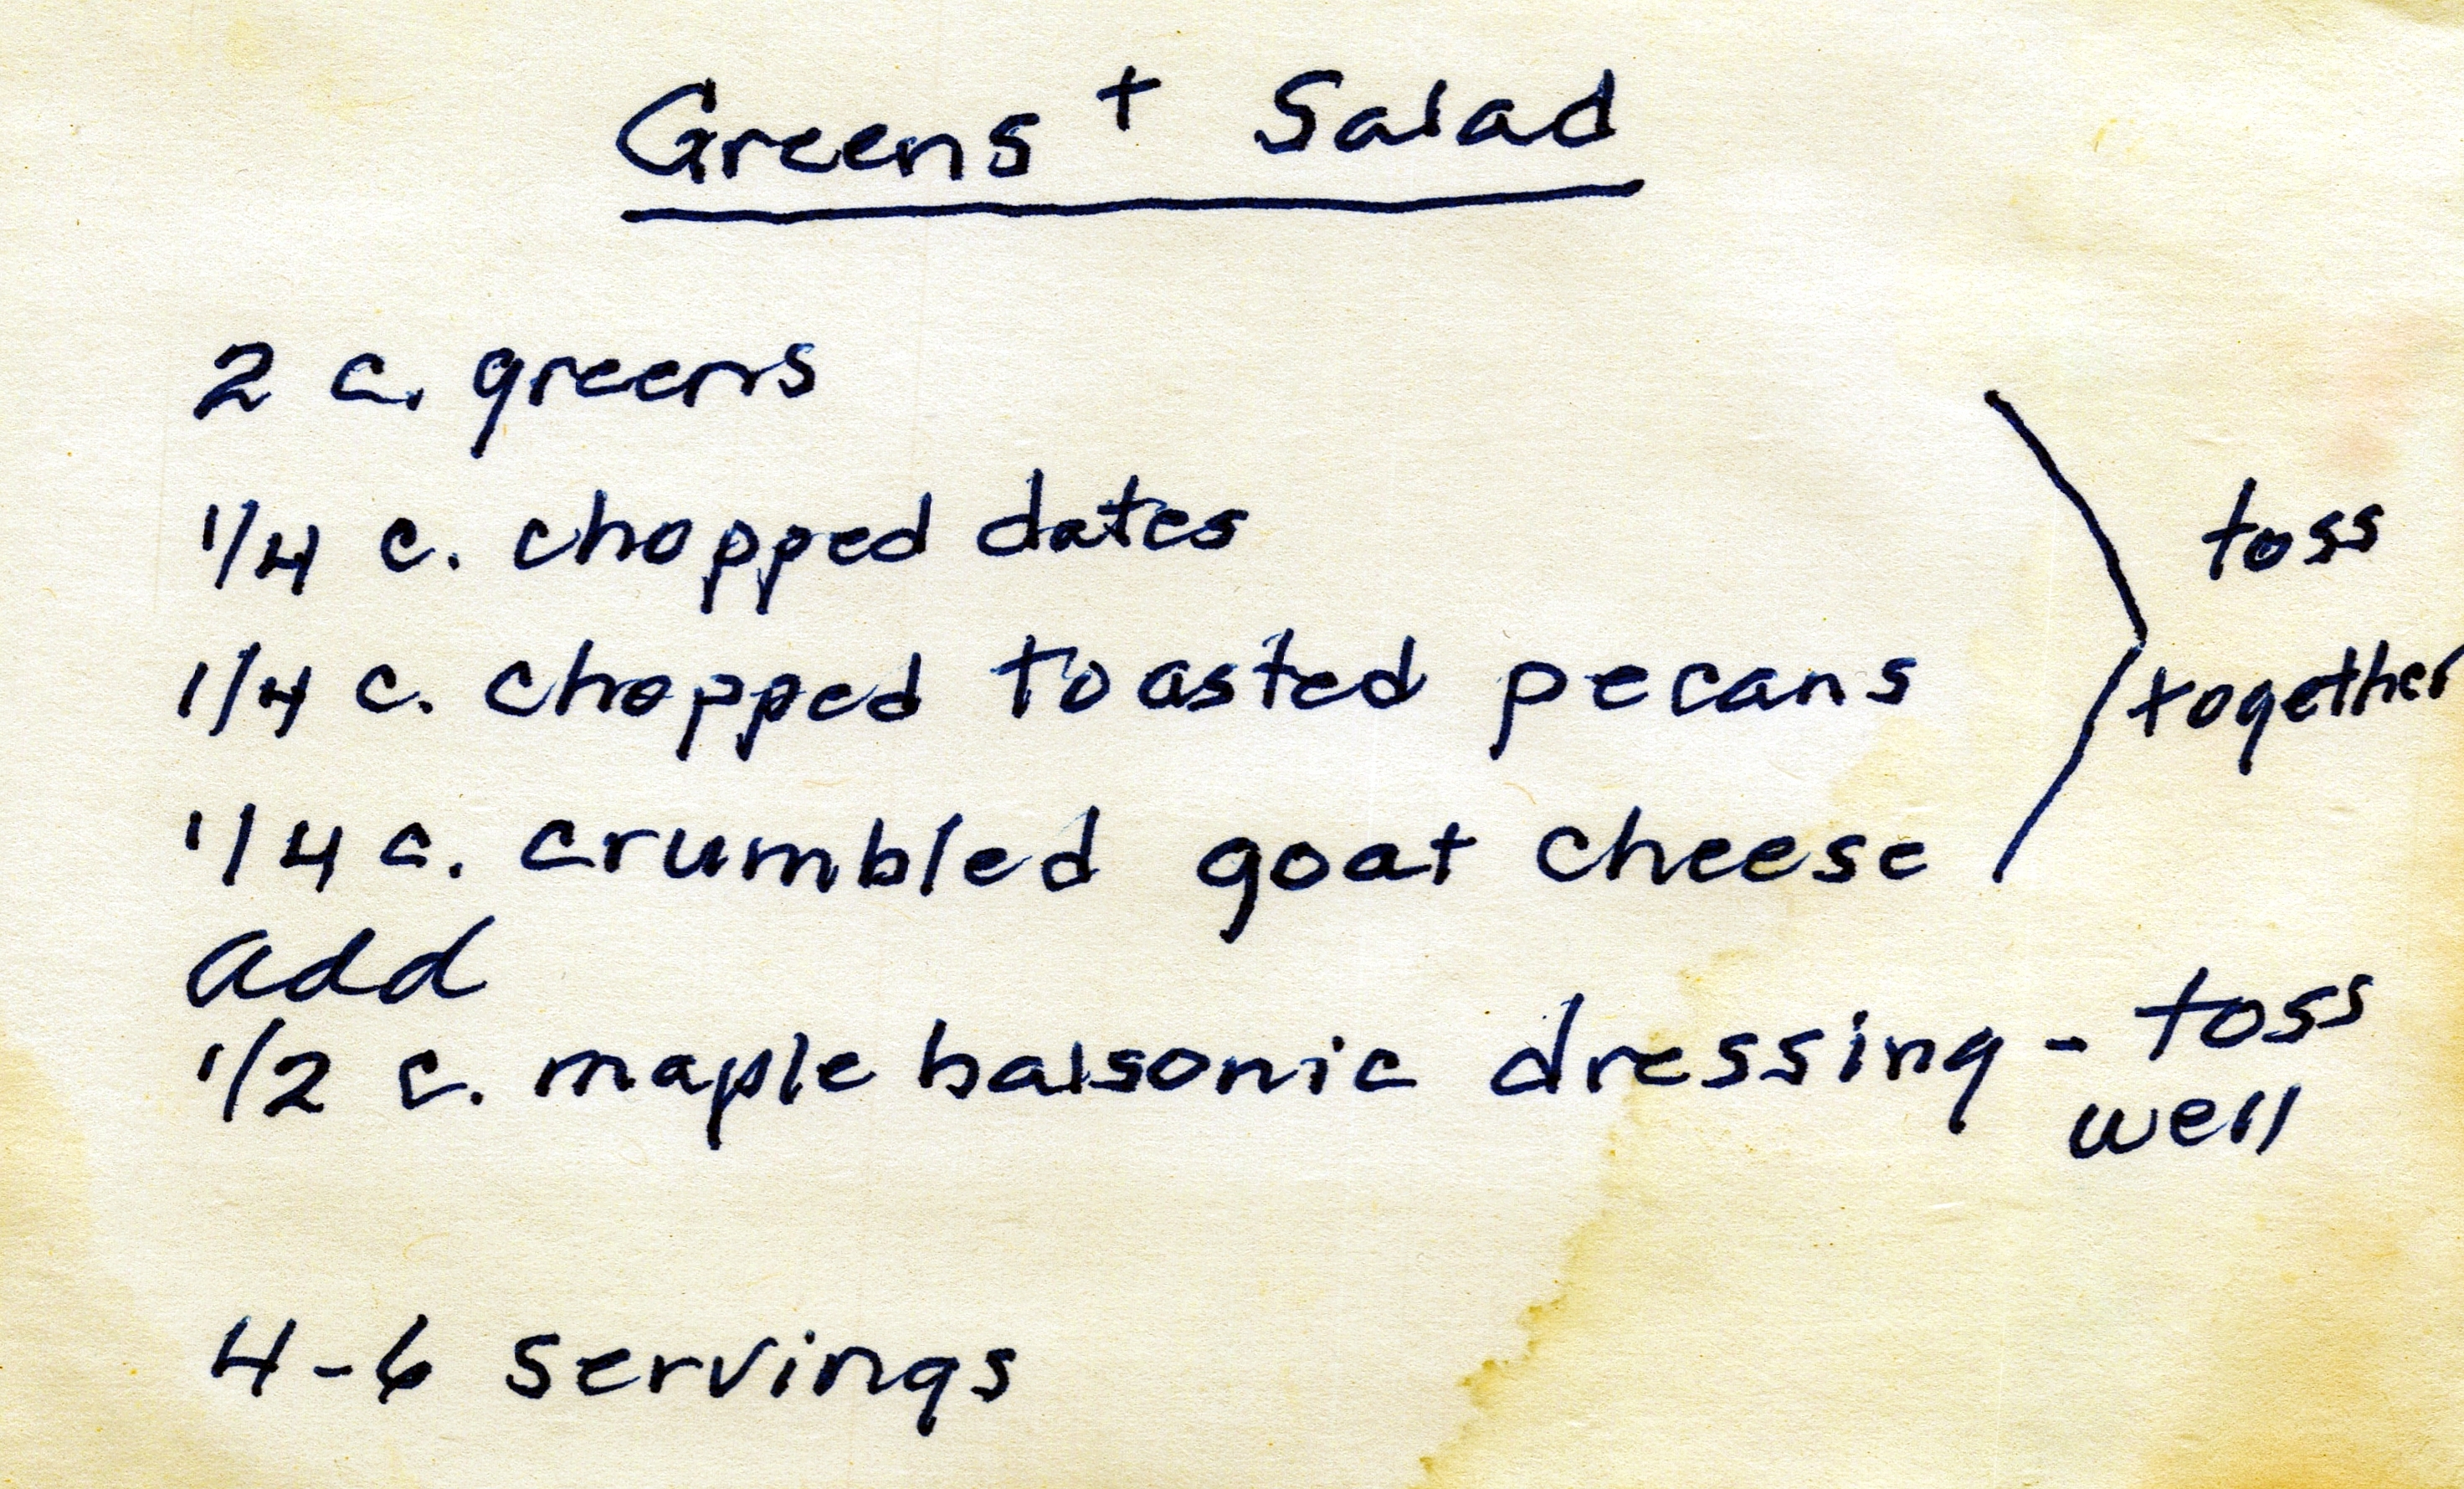 Greens + Salad
2 c. greens
1/4 c. chopped dates
toss
1/4 c. chopped toasted pecans
together
1/4 c. crumbled goat cheese
add
1/2 c. maple balsonic dressing - toss
well
4-6 servings